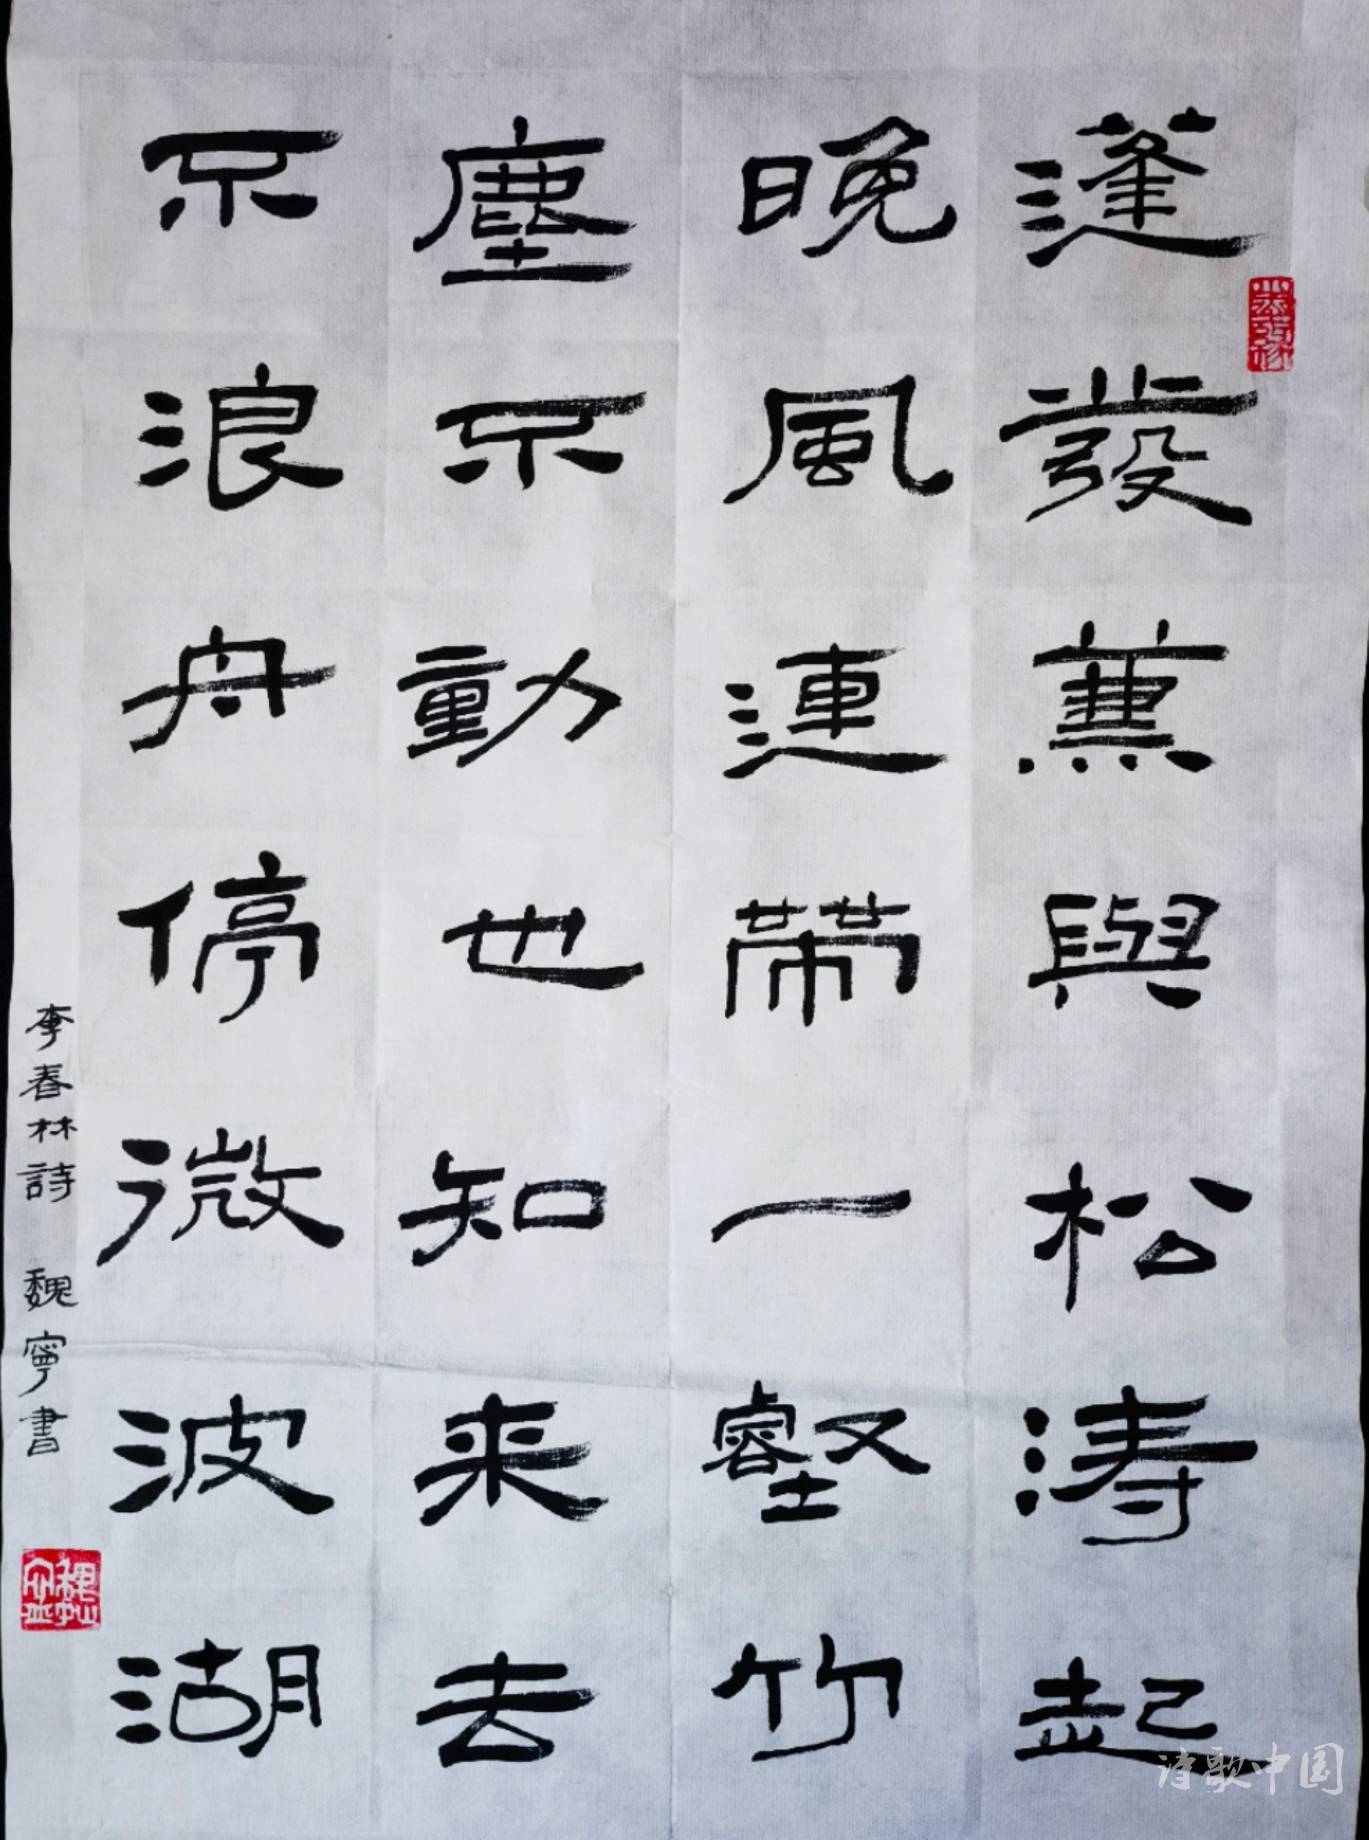 蓬發兼與松涛起
晚風連帶一壑竹
塵不動也知来去
不浪舟停微波湖
李春林詩 魏寧書
诗歌中国